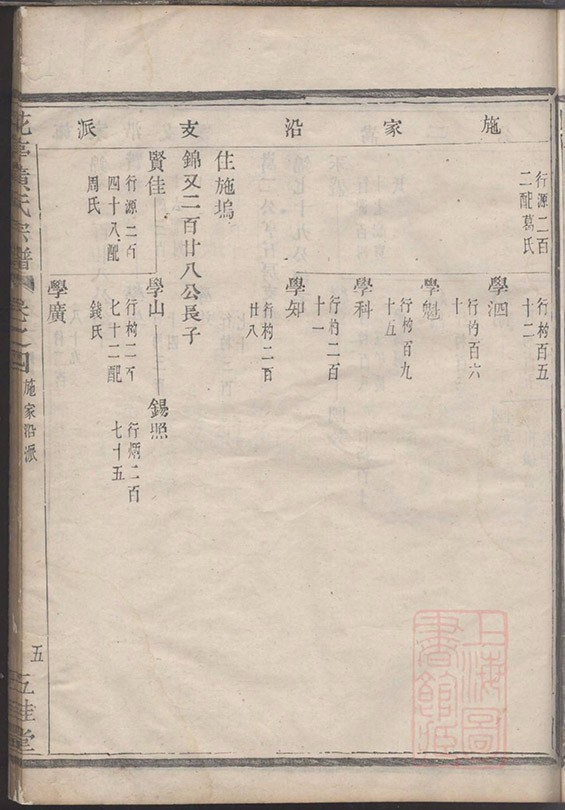 施家沿支派
行源二百
二配葛氏
學泗
行杓百五
十二
學魁
行杓百六
十
學科
行杓百九
十五
學知
行杓二百
十一
行杓二百
廿八
住施塢
錦又二百廿八公長子
賢佳
行源二百
四十八配
周氏
學山
行杓二百
七十二配
錢氏
錫照
行炳二百
七十五
學廣
黃氏宗譜
卷之四
施家沿派
五
五桂堂
上海圖書館藏